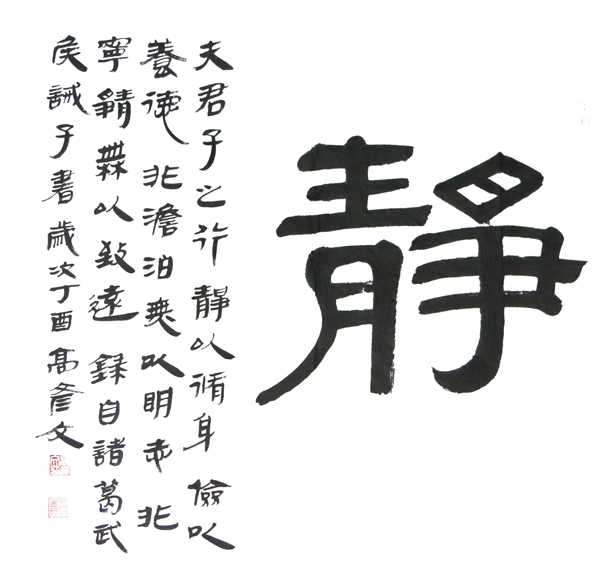 靜
夫君子之行靜以脩身儉以
養德非澹泊無以明志非
寧靜無以致遠錄自諸葛武
侯誡子書歲次丁酉高彥文